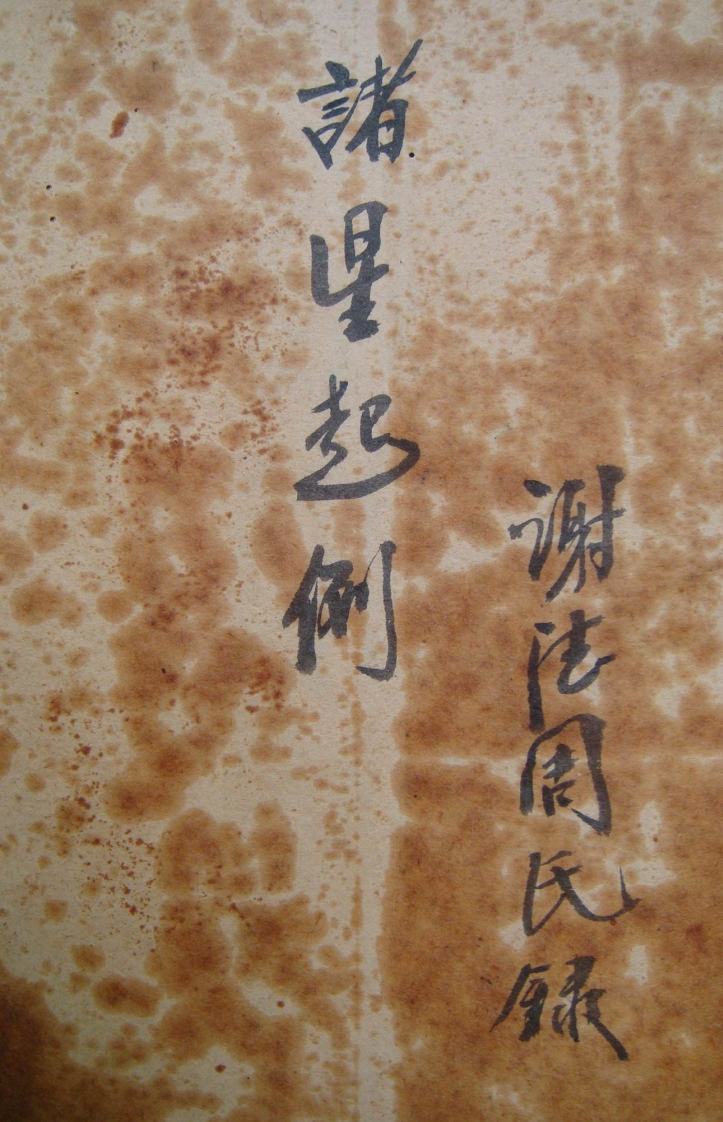 謝周氏錄
諸星起例